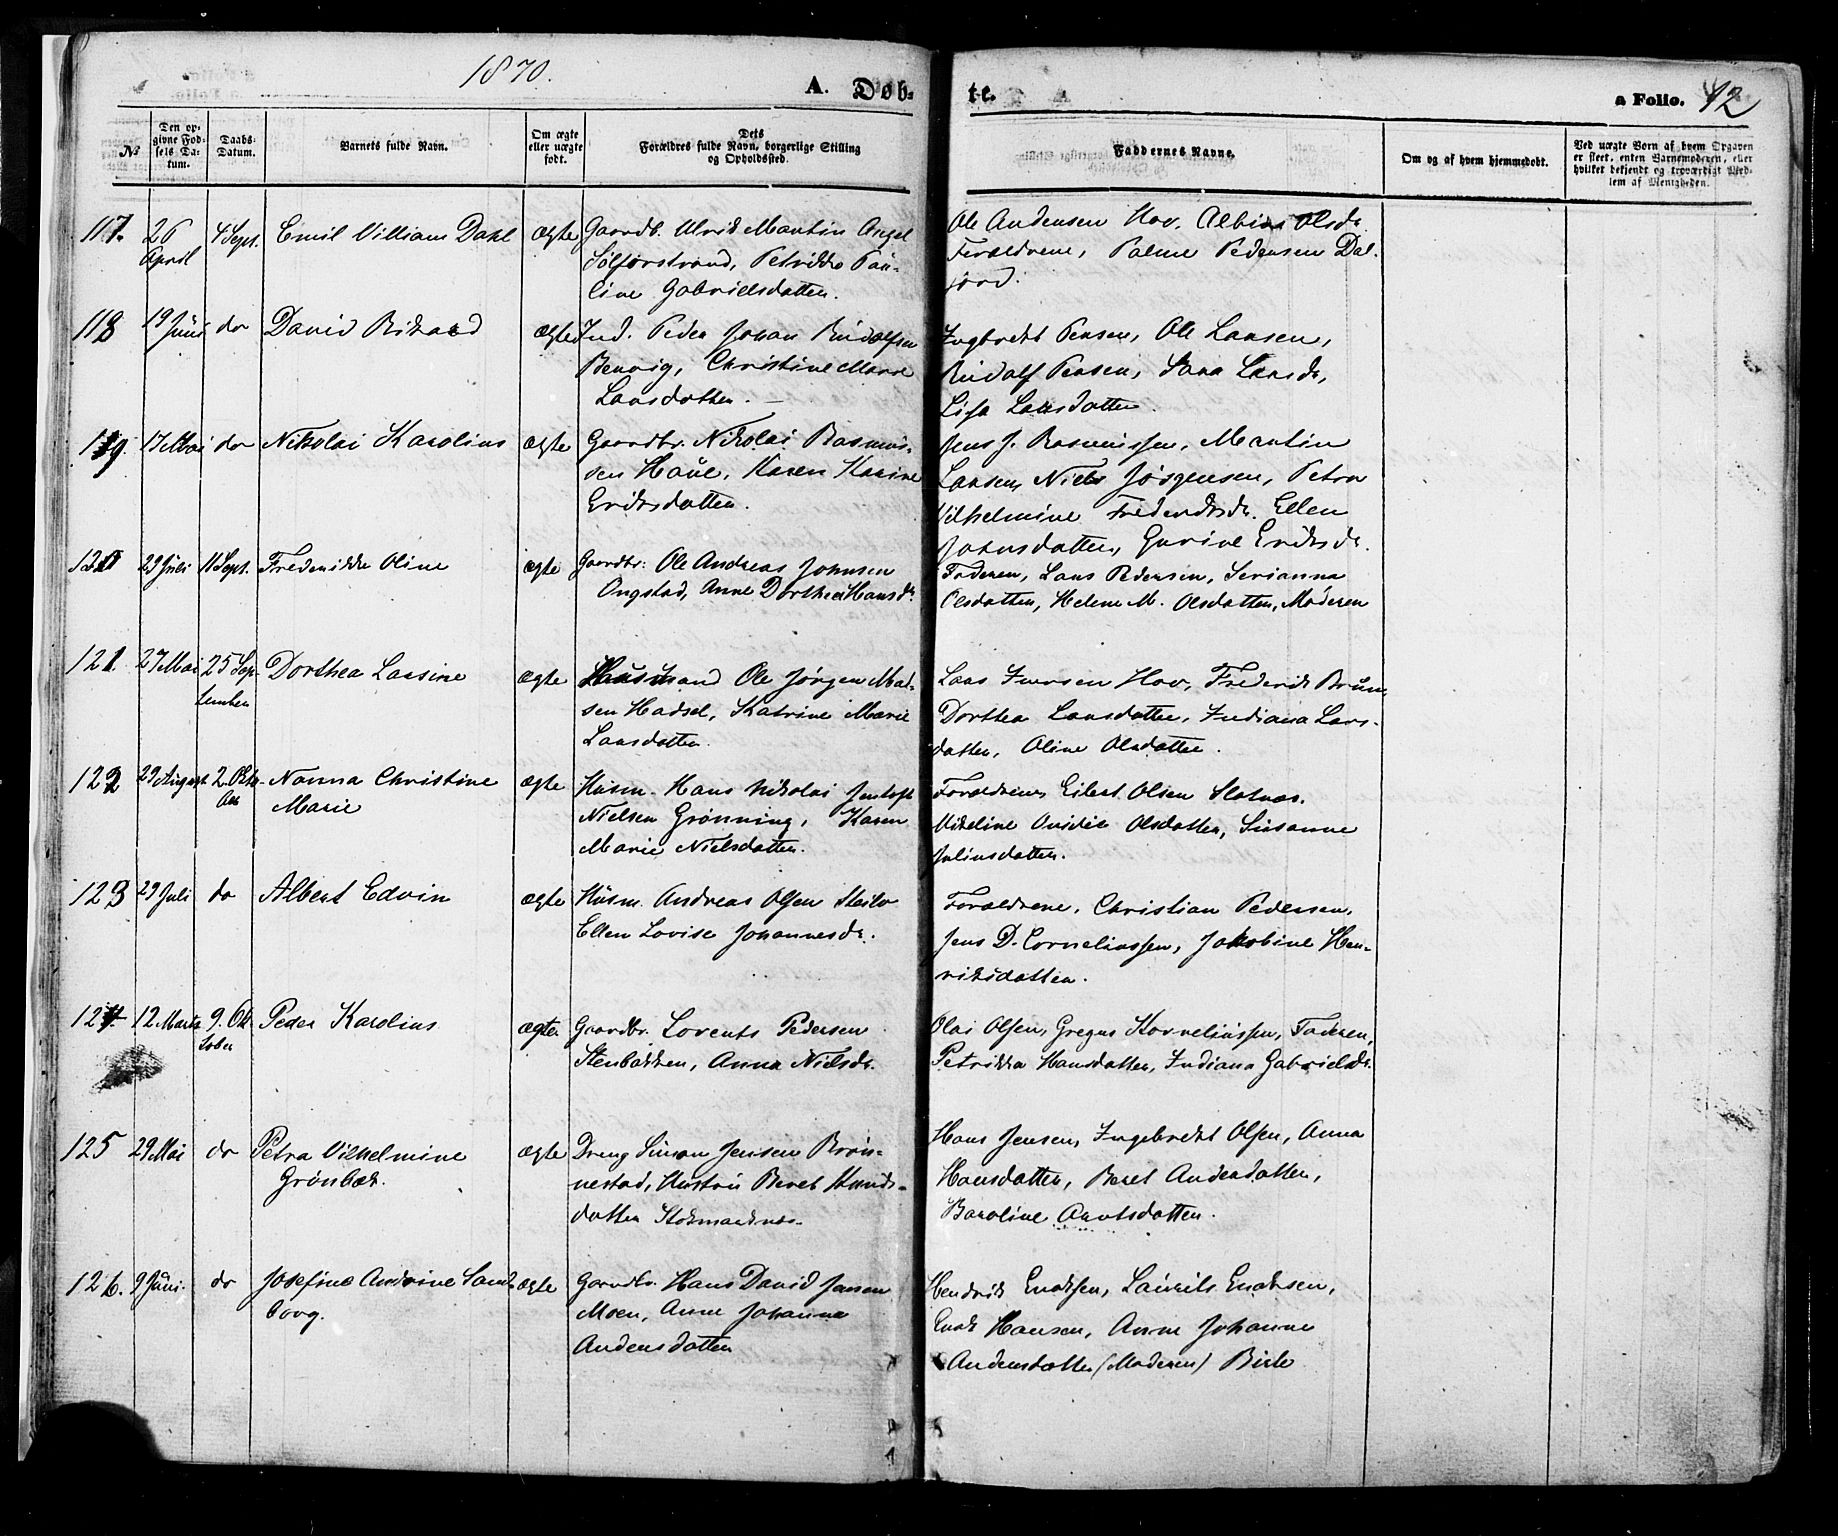 1870.
A. Døb-
te.
a Folio. 42
№
Den op-
givne Fød-
sels Da-
tum.
Daabs-
Datum.
Barnets fulde Navn.
Om ægte
eller uægte
født.
Dets
Forældres fulde Navn, borgerlige Stilling
og Opholdssted.
Faddernes Navne.
Om og af hvem hjemmedøbt.
Ved uægte Børn af hvem Opgaven
er skeet, enten Barnemoderen, eller
hvilket bekjendt og troværdigt Med-
lem af Menigheden.
117. 26 April 4 Sept. Emil Villiam Dahl ægte Gaardb. Ulrik Martin Angel
Sølferstrand, Petrikke Pau-
line Gabrielsdatter.
Ole Andersen Hov, Olsdr.
Forældrene, Palme Pedersen Dal-
jord.
118 19 Juni do David Rikard ægte Ind. Peder Johan Rudolfsen
Benvig, Christine Marie
Larsdatter.
Ingbrekt Pensen, Ole Larsen,
Rudolf Pensen, Sara Larsdr,
Lisa Larsdatter.
119. 17 Mai do Nikolai Karolius ægte Gaardbr. Nikolai Rasmus-
sen Haüe, Karen Karine
Eriksdatter.
Jens J. Rasmussen, Martin
Larsen, Niels Jørgensen, Petra
Vilhelmine Frederiksdr. Ellen
Johnsdatter, Gurine Eriksdr.
120 29 Juli 11 Sept. Frederikke Oline ægte Gaardbr: Ole Andreas Johnsen
Ongstad, Anne Dorthea Hansdr.
Faderen, Lars Pedersen, Serianna
Olsdatter, Helene M. Olsdatter, Moderen
121. 27 Mai 25 Sep-
tember Dorthea Larsine ægte Husmand Ole Jørgen Mad-
sen Hadsel, Katrine Marie
Larsdatter.
Lars Iversen Hov, Frederik Bruun
Dorthea Larsdatter, Indiana Lars-
datter, Oline Olsdatter.
122 29 August 2. Okto-
ber Nanna Christine
Marie ægte Husm. Hans Nikolai Jentoft
Nielsen Grønning, Karen
Marie Nielsdatter.
Forældrene, Eilert Olsen Slotnæs.
Mikeline Ovidie Olsdatter, Susanne
Juliusdatter.
123 29 Juli do Albert Edvin ægte Husm. Andreas Olsen Steilo
Ellen Lovise Johannesdr.
Forældrene, Christian Pedersen,
Jens D. Corneliussen, Jakobine Hen-
riksdatter.
124. 12 Marts 9. Ok-
tober Peder Karolius ægte Gaardbr. Lorents Pedersen
Stenbakken, Anna Nielsdr.
Olai Olsen, Gregus Korneliussen, Faderen,
Petrikka Hansdatter, Indiana Gabrielsdr.
125 29 Mai do Petra Vilhelmine
Grønbæk. ægte Dreng Simon Jensen Brøn-
nestad, Hustru Beret Knuds-
datter Stokmarknæs
Hans Jensen, Ingebrekt Olsen, Anna
Hansdatter, Beret Andersdatter,
Baroline Arntsdatter.
126. 9 Juni. do Josefine Andrine Sand-
borg. ægte Gaardbr. Hans David Jensen
Moen, Anne Johanna
Andersdatter
Hendrik Enoksen, Laurits Enoksen,
Enok Hansen, Anne Johanne
Andersdatter (Moderen) Birte